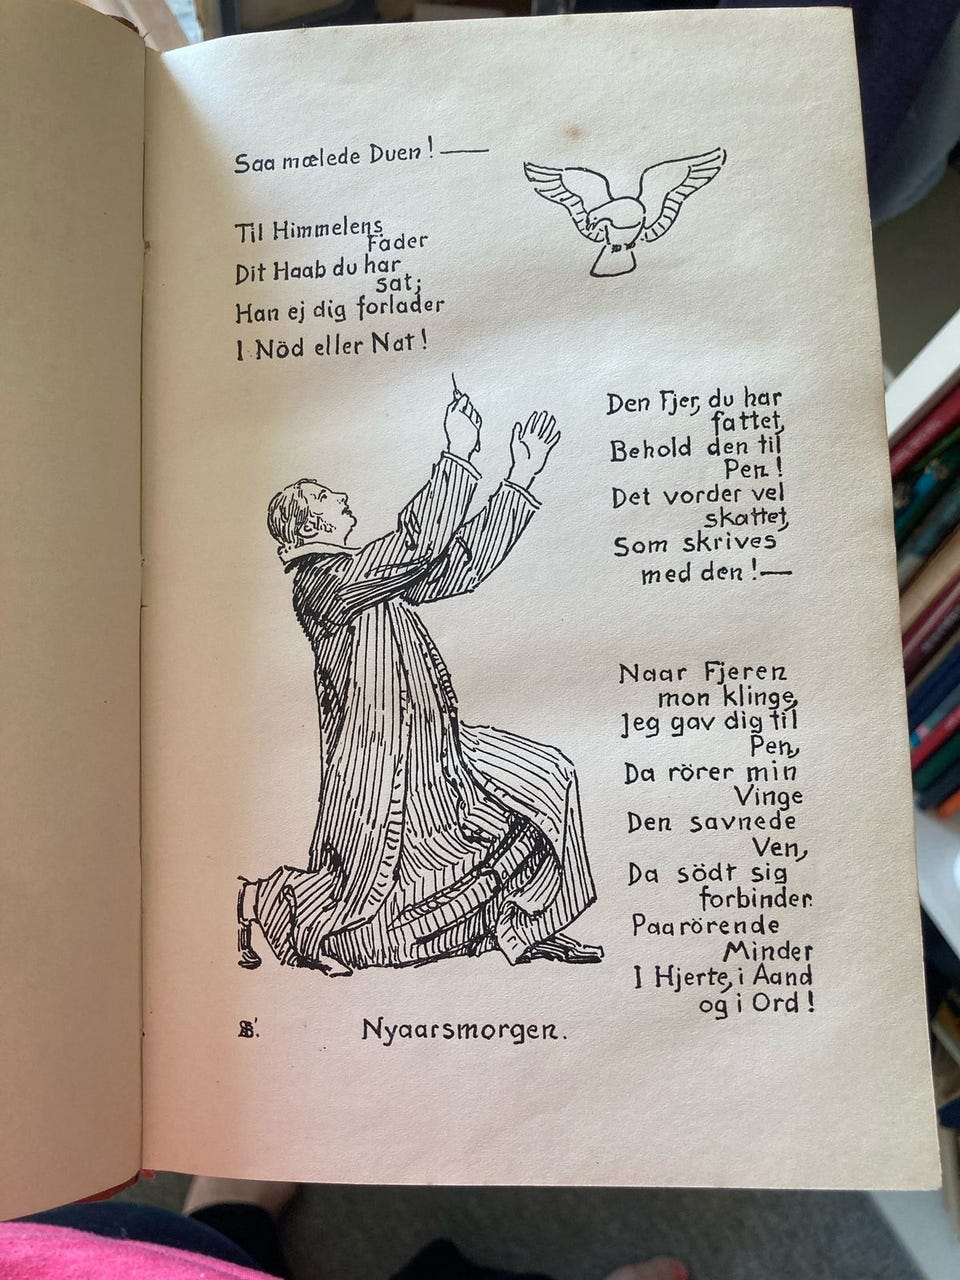 Saa mælede Duen! —
Til Himmelens
Fader
Dit Haab du har
sat;
Han ej dig forlader
I Nöd eller Nat!
Den Fjer, du har
fattet,
Behold den til
Pen!
Det vorder vel
skattet,
Som skrives
med den! —
Naar Fjeren
mon klinge,
Jeg gav dig til
Pen,
Da rörer min
Vinge
Den savnede
Ven,
Da södt sig
forbinder
Paarörende
Minder
I Hjerte, i Aand
og i Ord!
Nyaarsmorgen.